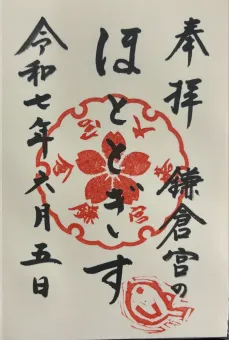 奉拝
鎌倉宮の
ほとゝぎす
令和七年六月五日
鎌倉宮